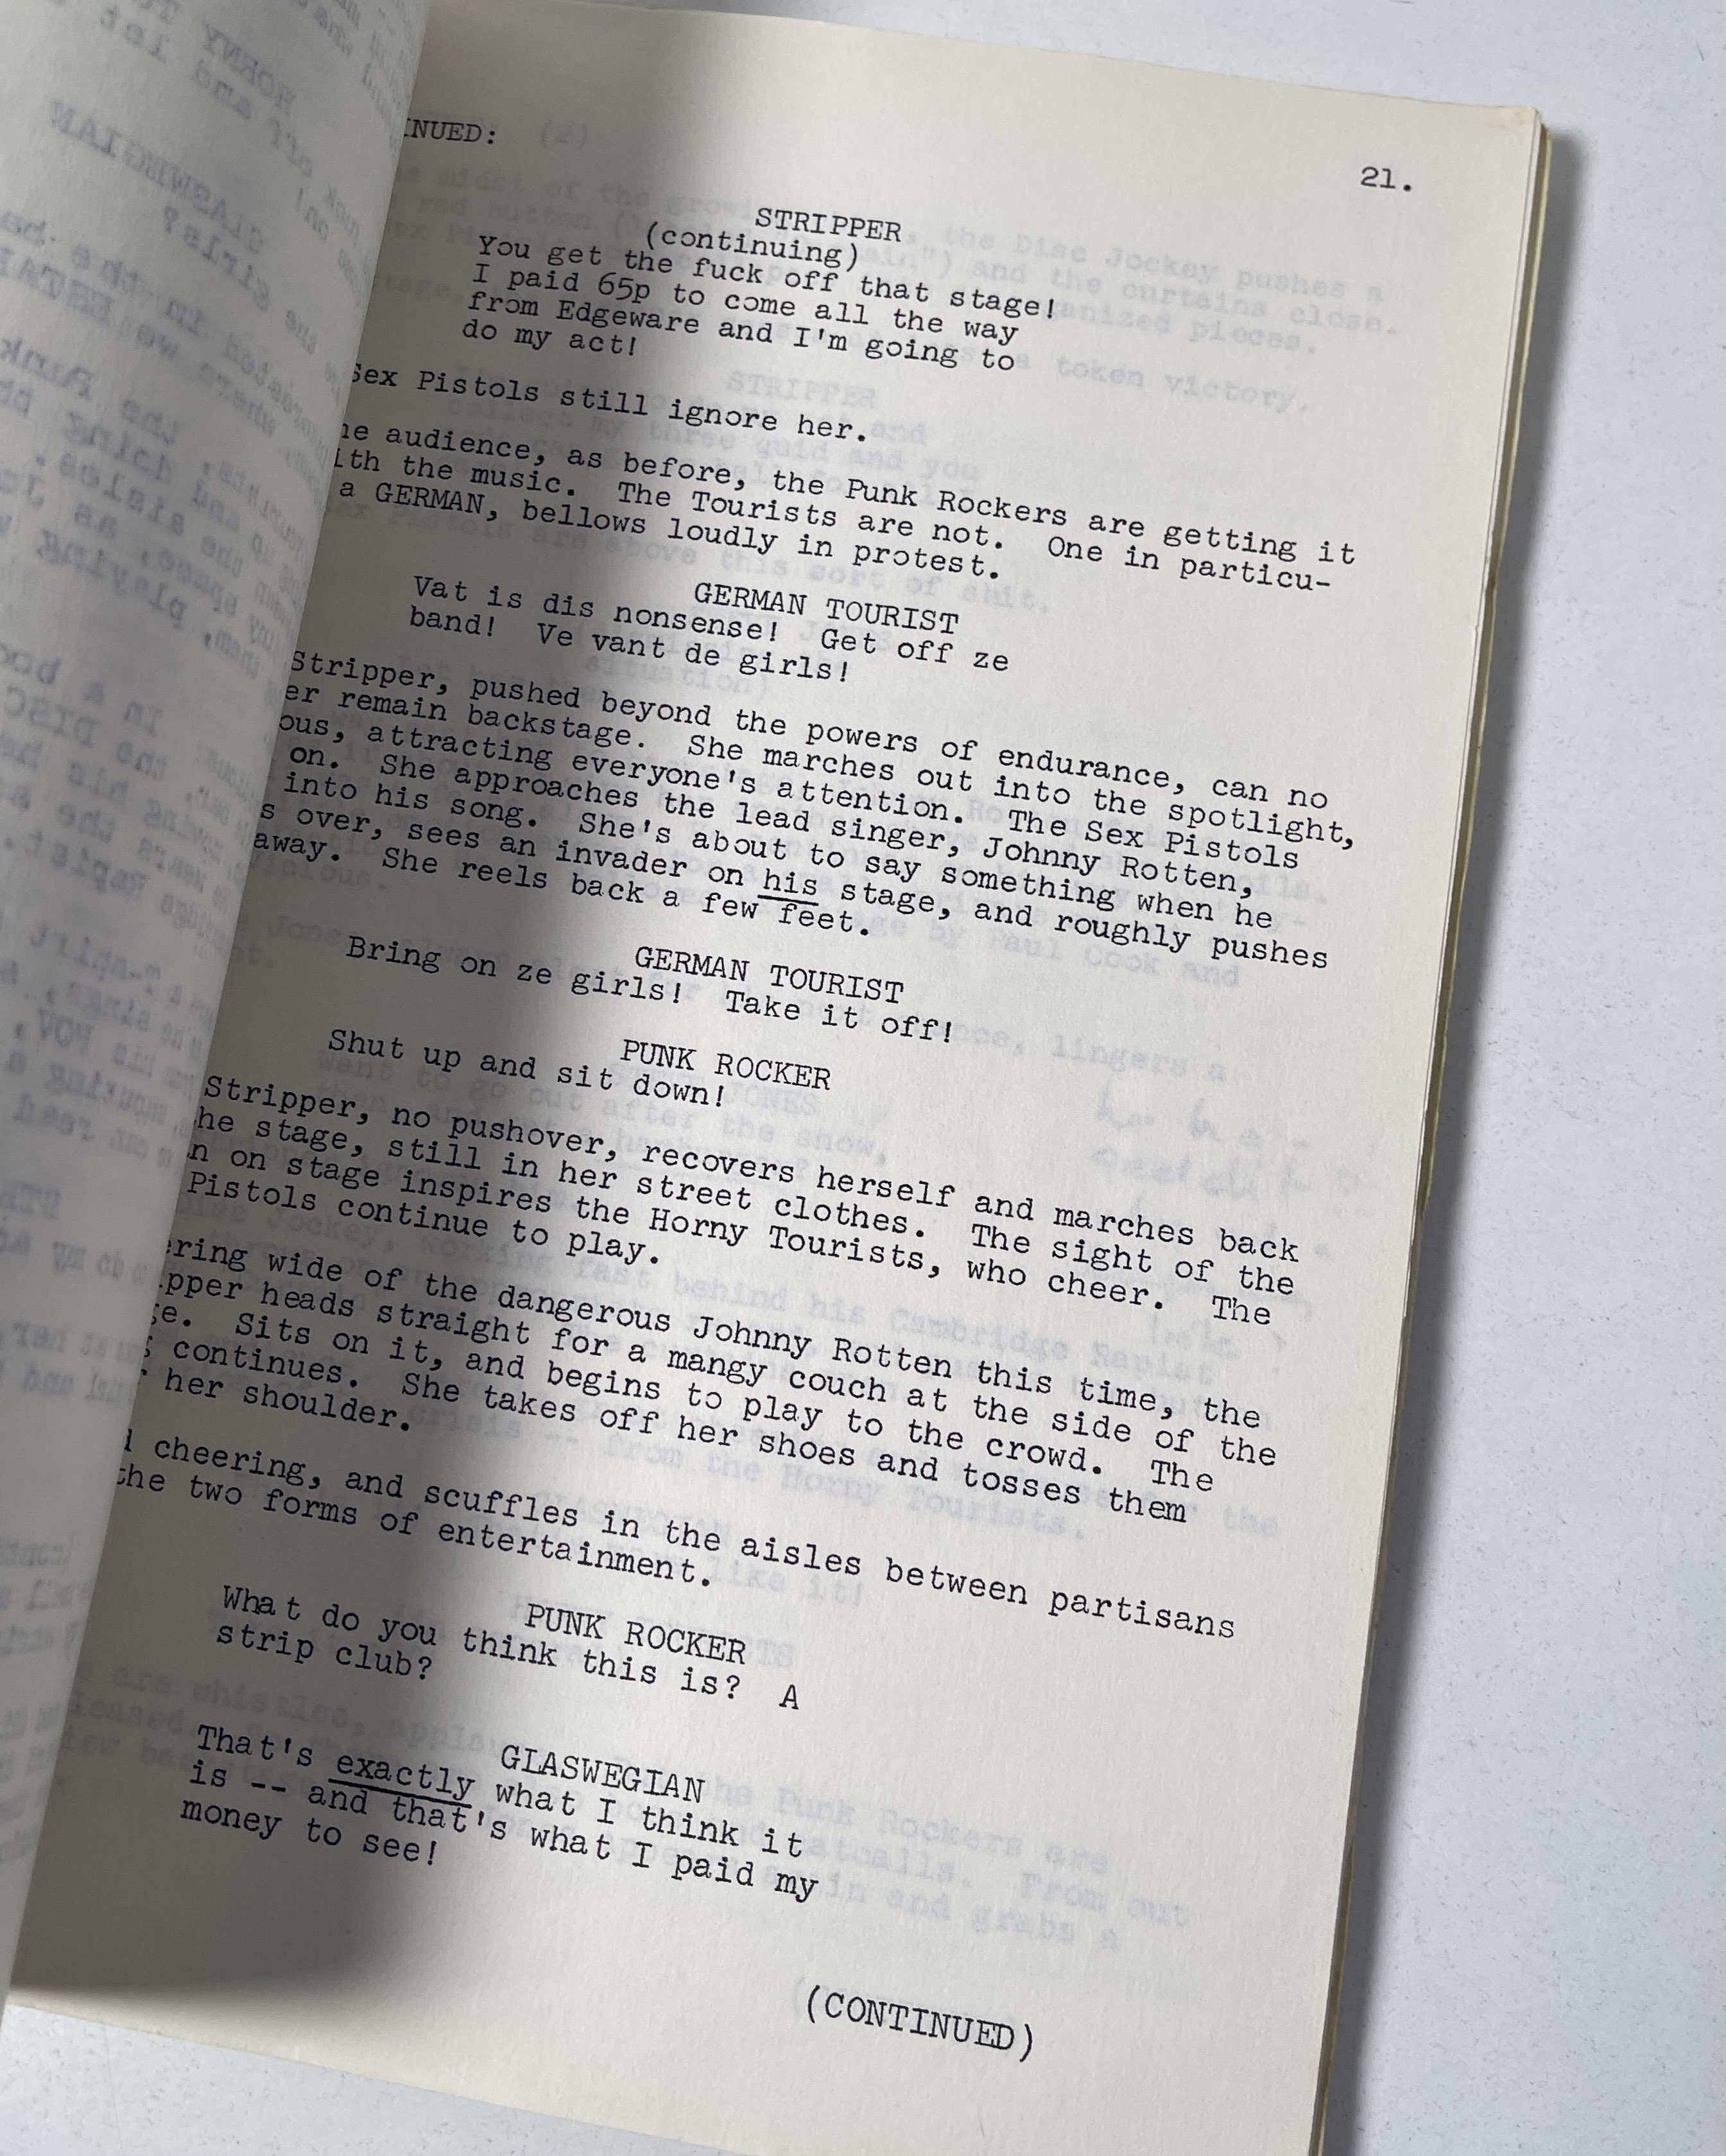 INUED:
21.
STRIPPER
(continuing)
You get the fuck off that stage!
I paid 65p to come all the way
from Edgeware and I'm going to
do my act!
Sex Pistols still ignore her.
he audience, as before, the Punk Rockers are getting it
ith the music. The Tourists are not. One in particu-
a GERMAN, bellows loudly in protest.
GERMAN TOURIST
Vat is dis nonsense! Get off ze
band! Ve vant de girls!
Stripper, pushed beyond the powers of endurance, can no
er remain backstage. She marches out into the spotlight,
ous, attracting everyone's attention. The Sex Pistols
on. She approaches the lead singer, Johnny Rotten,
into his song. She's about to say something when he
s over, sees an invader on his stage, and roughly pushes
away. She reels back a few feet.
GERMAN TOURIST
Bring on ze girls! Take it off!
PUNK ROCKER
Shut up and sit down!
Stripper, no pushover, recovers herself and marches back
he stage, still in her street clothes. The sight of the
n on stage inspires the Horny Tourists, who cheer. The
Pistols continue to play.
ering wide of the dangerous Johnny Rotten this time, the
ipper heads straight for a mangy couch at the side of the
ge. Sits on it, and begins to play to the crowd. The
continues. She takes off her shoes and tosses them
r her shoulder.
d cheering, and scuffles in the aisles between partisans
the two forms of entertainment.
PUNK ROCKER
What do you think this is? A
strip club?
GLASWEGIAN
That's exactly what I think it
is -- and that's what I paid my
money to see!
(CONTINUED)